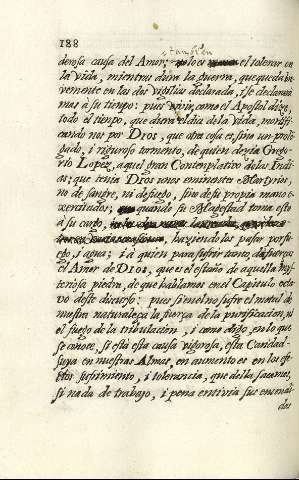 188
tanbien
derosa causa del Amor; lo es el tolerar en
la vida, mientras dura la guerra, que queda bre-
vemente en las dos vigilias declarada, i se declarará
mas à su tiempo: pues vivir, como el Apostol dize,
todo el tiempo, que dura el dia de la vida, mortifi-
candonos por Dios, que otra cosa es, sino un prolon-
gado, i riguroso tormento, de quien dezia Grego-
rio Lopez, aquel gran Contemplativo de las Indi-
as; que tenia Dios unos eminentes Martyrio,
no de sangre, ni de fuego, sino de su propia mano e
xercitados; quando su Magestad toma esto
à su cargo, haziendolos pasar por fu-
ego, i agua; i à quien para sufrir tanto, da fuerças
el Amor de Dios, que es el estaño de aquella mys-
teriosa piedra, de que hablamos en el Capitulo octa-
vo deste discurso: pues si mal no sufre el metal de
nuestra naturaleça la fuerça de la purificacion, ni
el fuego de la tribulacion, i como digo, en lo que
se conoce, si està esta causa vigorosa, esta Caridad
suya en nuestras Almas, en aumento es en los efe-
ctos sufrimiento, i tolerancia, que della sacamos,
si nada de trabajo, i pena entivia sus encendi-
dos